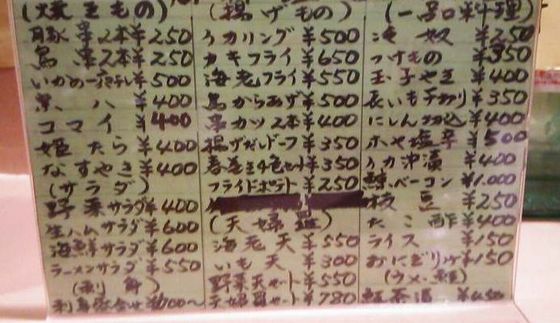 (焼きもの)
豚串2本 ¥250
鳥串2本 ¥250
いかの一夜干し ¥500
宗八 ¥400
コマイ ¥400
姫たら ¥400
なすやき ¥400
(サラダ)
野菜サラダ ¥400
生ハムサラダ ¥600
海鮮サラダ ¥600
ラーメンサラダ ¥550
(刺身)
刺身盛合せ ¥700~
(揚げもの)
イカリング ¥500
カキフライ ¥650
海老フライ ¥550
鳥からあげ ¥500
串カツ2本 ¥400
揚げガンドーフ ¥350
春巻き4色セット ¥350
フライドポテト ¥250
(天婦羅)
海老天 ¥550
いも天 ¥300
野菜天セット ¥550
天婦羅セット ¥780
(一品料理)
冷奴 ¥250
つけもの ¥350
玉子やき ¥400
長いも千切り ¥350
にしん切込 ¥400
ホヤ塩辛 ¥500
イカ沖漬 ¥400
鯨ベーコン ¥1.000
枝豆 ¥250
たこ酢 ¥400
ライス ¥150
おにぎり ¥150
(ウメ・鮭)
鮭茶漬 ¥450